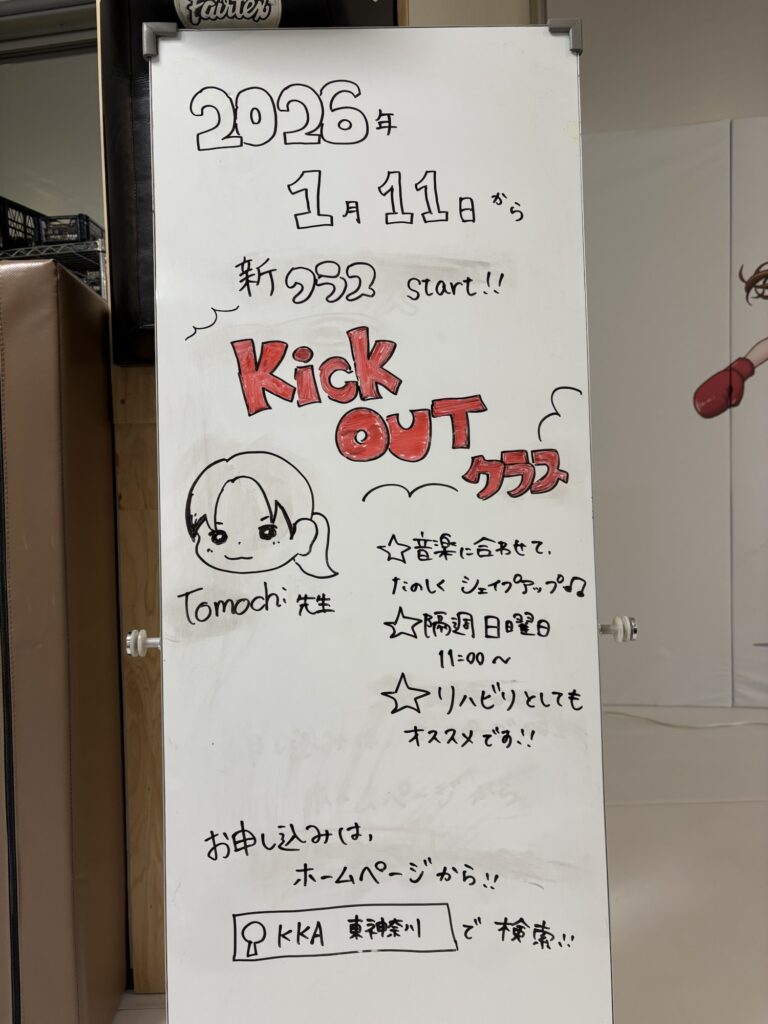 Fairtex
2026年
1月11日から
新クラス start!!
Kick
OUT
クラス
Tomochi 先生
☆音楽に合わせて、
たのしく シェイプアップ♫
☆隔週日曜日
11:00〜
☆リハビリとしても
オススメです!!
お申し込みは、
ホームページから!!
KKA 東神奈川 で検索!!